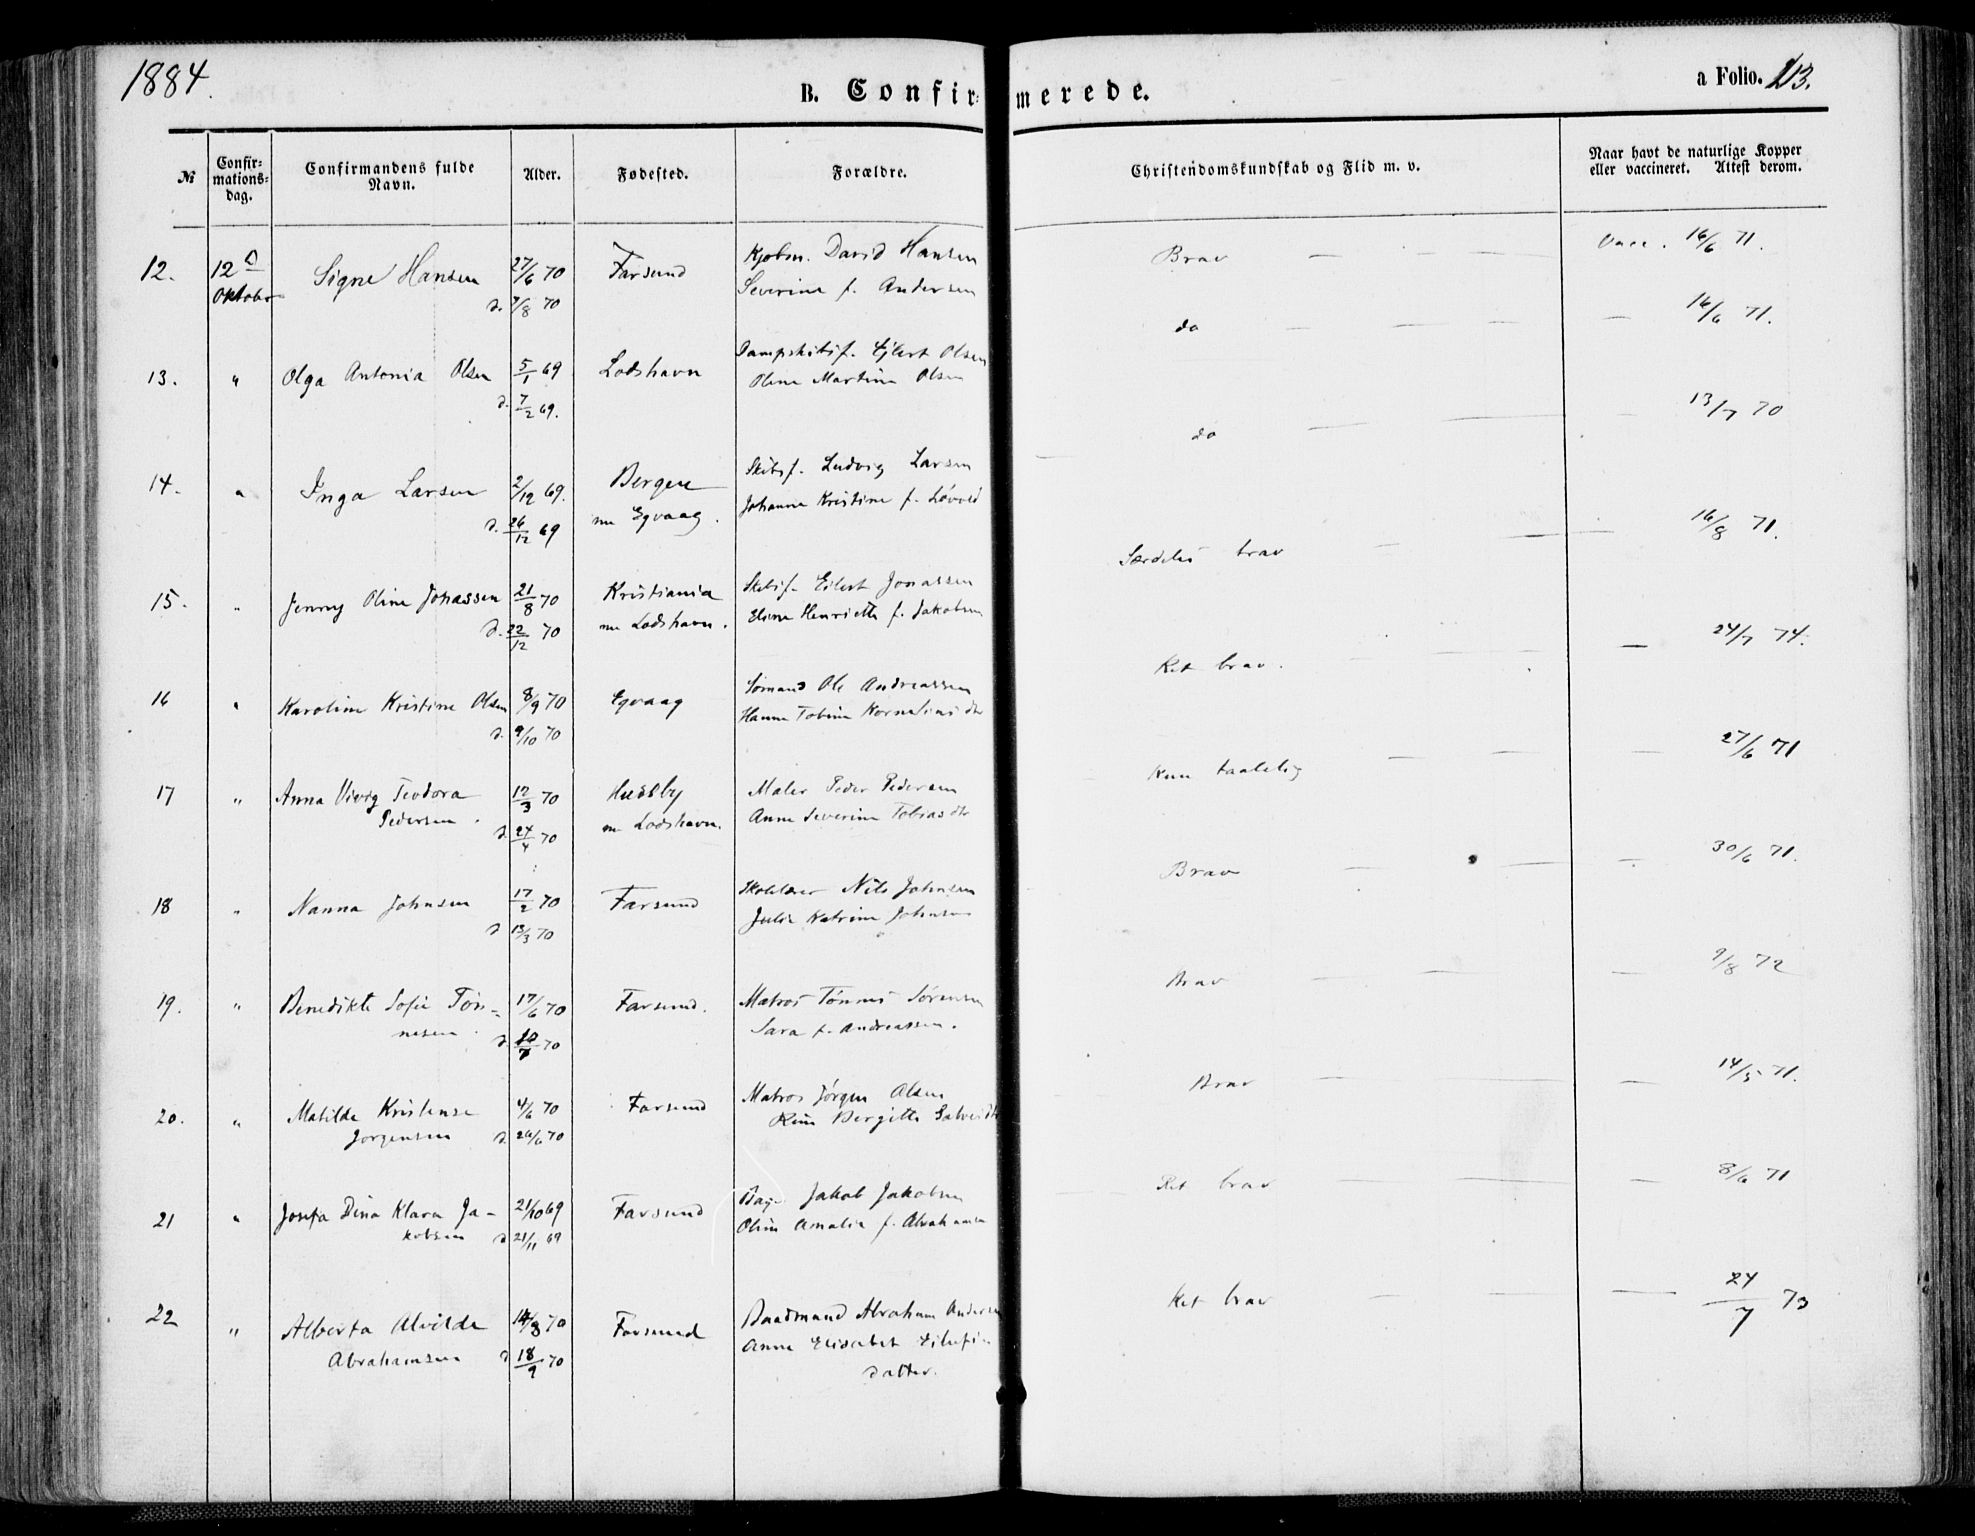 1884.
B. Confirmerede.
a Folio. 113.
№
Confirmationsdag.
Confirmandens fulde Navn.
Alder.
Fødested.
Forældre.
Christendomskundskab og Flid m. v.
Naar havt de naturlige Kopper eller vaccineret. Attest derom.
12. 12 Oktober Signe Hansen 27/6 70 Farsund Kjøbm. David Hansen Brav — — — Vacc. 16/6 71.
d. 7/8 70 Severine f. Andersen
13. " Olga Antonia Olsen 5/1 69 Lodshavn Dampskibsf. Ejlert Olsen do — — — — 16/6 71.
d. 7/2 69. Oline Martine Olsen
14. " Inga Larsen 2/12 69. Bergen Skibsf. Ludvig Larsen do — — — 13/7 70
d. 26/12 69 nu Egvaag. Johanne Kristine f. Løvold
15. " Jenny Oline Jonassen 21/8 70 Kristiania Skibsf. Eilert Jonassen Særdeles brav — — — 16/8 71.
d. 22/12 70 nu Lodshavn. Eline Henriette f. Jakobsen
16 " Karoline Kristine Olsen 8/9 70 Egvaag Sømand Ole Andreassen Ret brav. — — — 24/7 74.
d. 9/10 70 Hanne Tobine Korneliusdtr
17 " Anna Vivig Teodora 12/3 70 Huseby Maler Peder Pedersen Kun taalelig — — — 27/6 71
Pedersen. d. 24/4 70 nu Lodshavn. Anne Severine Tobiasdtr
18 " Nanna Johnsen 17/2 70 Farsund Skolelærer Nils Johnsen Brav — — — 30/6 71.
d 13/3 70 Julie Katrine Johnsen
19. " Benedikte Sofie Tøn- 17/6 70 Farsund. Matros Tønnes Sørensen Brav — — — 9/8 72
nesen. d. 10/7 70 Sara f. Andreassen.
20. " Matilde Kristense 4/6 70 Farsund Matros Jørgen Olsen Brav — — — 14/5 71.
Jørgensen d. 26/6 70 Bergitte
21 " Josefa Dina Klara Ja- 21/10 69 Farsund Jakob Jakobsen Ret brav — — — 8/6 71
kobsen d 21/11 69 Oline Amalie f. Abrahamsen
22 " Alberta Alvilde 14/8 70 Farsund Baadsmand Abraham Andersen Ret brav — — — 24/7 73
Abrahamsen d 18/9 70 Anne Elisabet
datter.